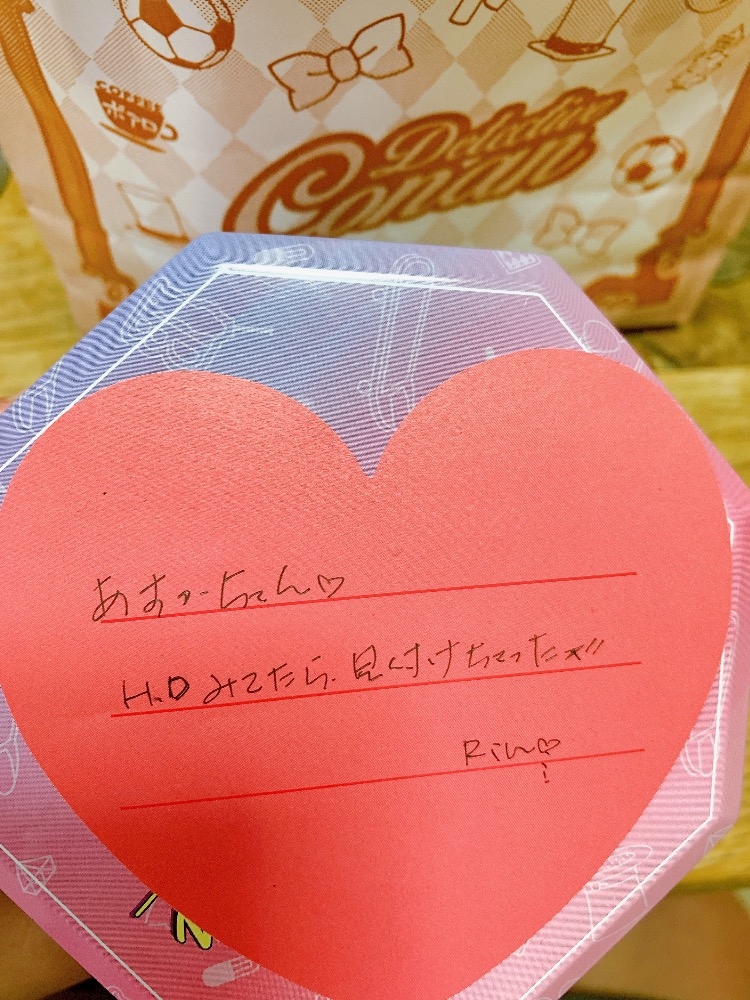 COFFEE
ポアロ
Detective
Conan
あすかーちゃん♡
H.D みてたら、見付けちゃった☆!!
Rin♡